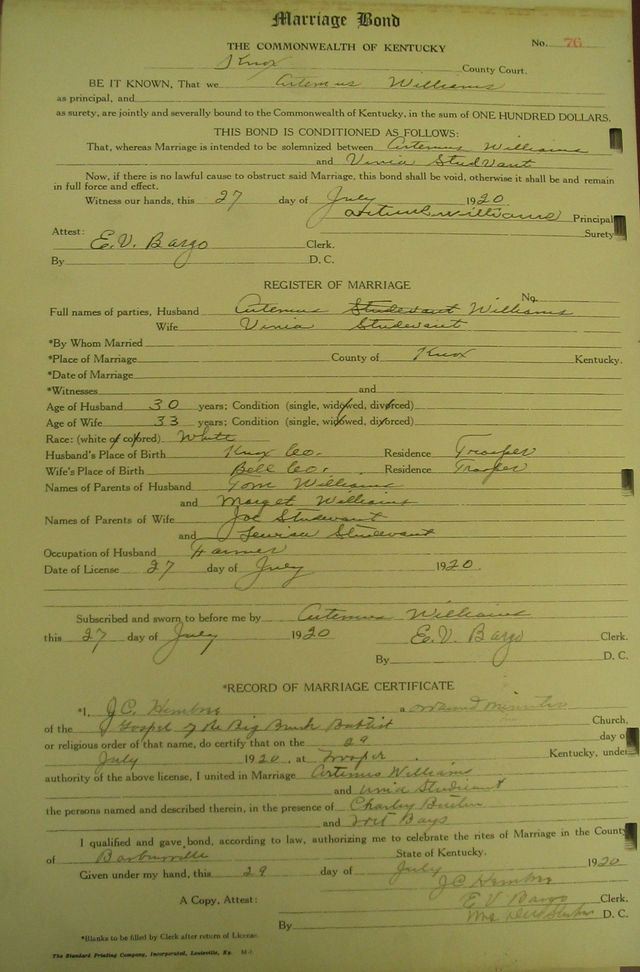 Marriage Bond
THE COMMONWEALTH OF KENTUCKY
No. 76
Knox County Court.
BE IT KNOWN, That we Artemus Williams
as principal, and
as surety, are jointly and severally bound to the Commonwealth of Kentucky, in the sum of ONE HUNDRED DOLLARS.
THIS BOND IS CONDITIONED AS FOLLOWS:
That, whereas Marriage is intended to be solemnized between Artemus Williams
and Vinia Studvant
Now, if there is no lawful cause to obstruct said Marriage, this bond shall be void, otherwise it shall be and remain
in full force and effect.
Witness our hands, this 27 day of July 1920
Williams Principal
Surety
Attest: E. V. Bargo Clerk.
By D. C.
REGISTER OF MARRIAGE
No.
Full names of parties, Husband Artemus Studevant Williams
Wife Vinia Studevant
*By Whom Married
*Place of Marriage County of Knox Kentucky.
*Date of Marriage
*Witnesses and
Age of Husband 30 years; Condition (single, widowed, divorced)
Age of Wife 33 years; Condition (single, widowed, divorced)
Race: (white or colored) White
Husband's Place of Birth Knox Co. Residence Trosper
Wife's Place of Birth Bell Co. Residence Trosper
Names of Parents of Husband Tom Williams
and Marget Williams
Names of Parents of Wife Joe Studevant
and Studevant
Occupation of Husband Farmer
Date of License 27 day of July 1920.
Subscribed and sworn to before me by Artemus Williams
this 27 day of July 1920 E. V. Bargo Clerk.
By D. C.
*RECORD OF MARRIAGE CERTIFICATE
*I, J. C. a ordained minister
of the Gospel of the Big Baptist Church,
or religious order of that name, do certify that on the 29 day of
July 1920, at Trosper Kentucky, under
authority of the above license, I united in Marriage Artemus Williams
and
the persons named and described therein, in the presence of Charley
and Bays
I qualified and gave bond, according to law, authorizing me to celebrate the rites of Marriage in the County
of Barbourville State of Kentucky.
Given under my hand, this 29 day of July 1920
J C
A Copy, Attest: E V Bargo Clerk,
By D. C.
*Blanks to be filled by Clerk after return of License.
The Standard Printing Company, Incorporated, Louisville, Ky.